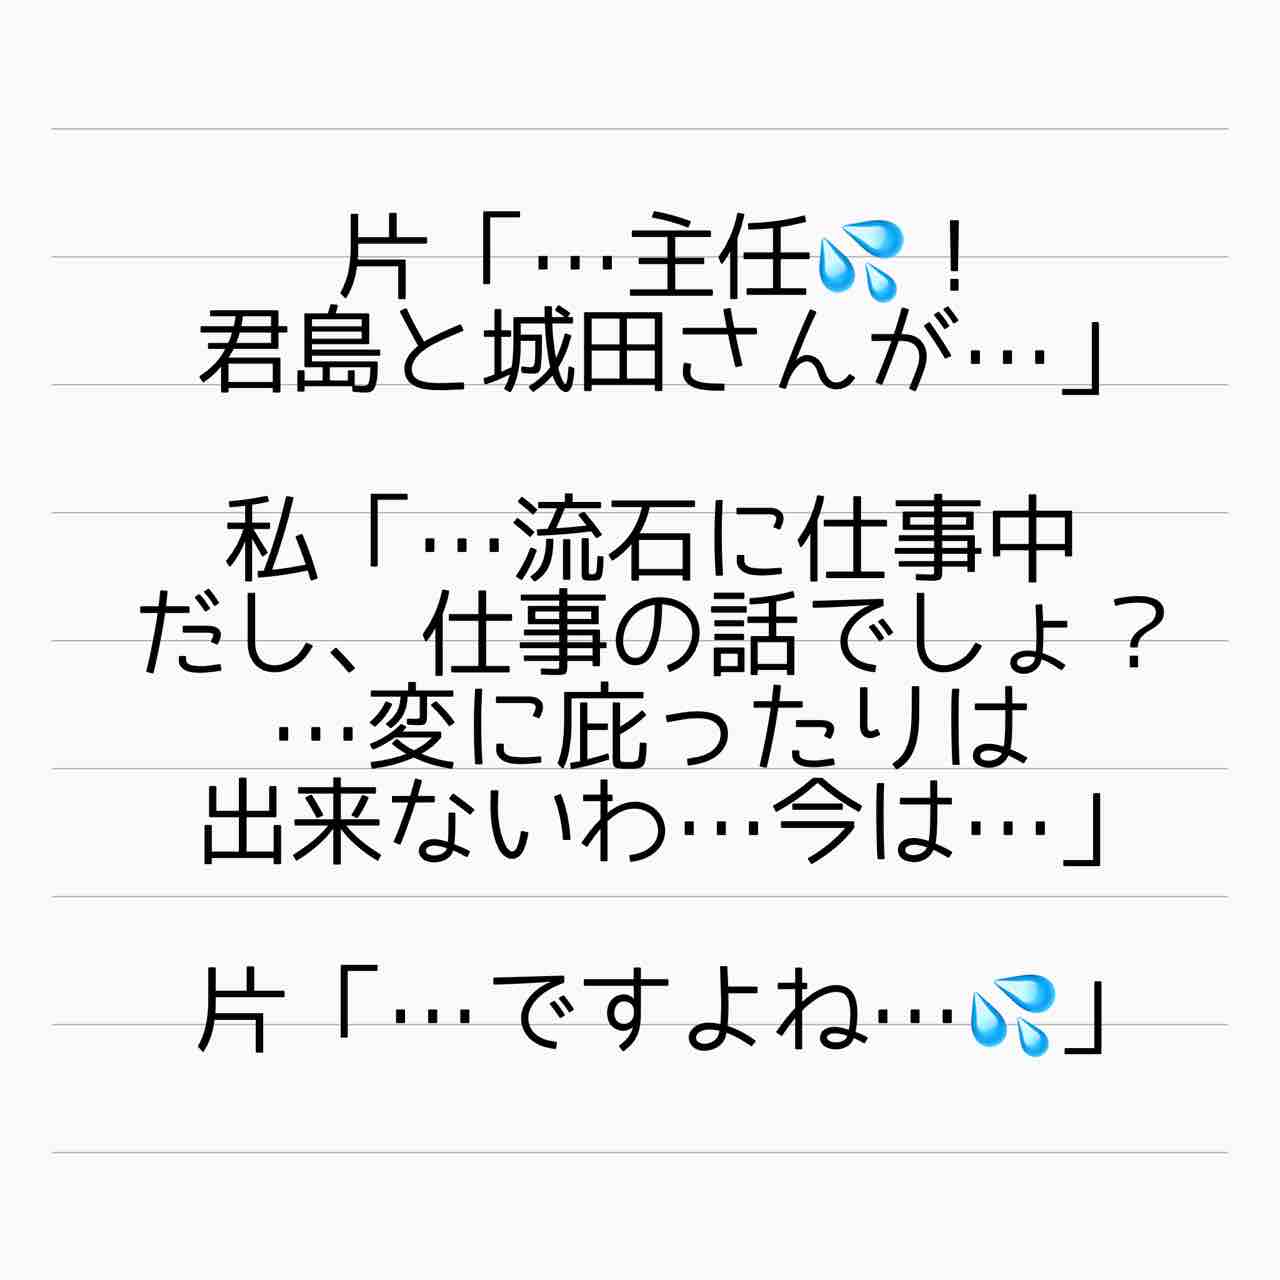 片「…主任💦！
君島と城田さんが…」
私「…流石に仕事中
だし、仕事の話でしょ？
…変に庇ったりは
出来ないわ…今は…」
片「…ですよね…💦」